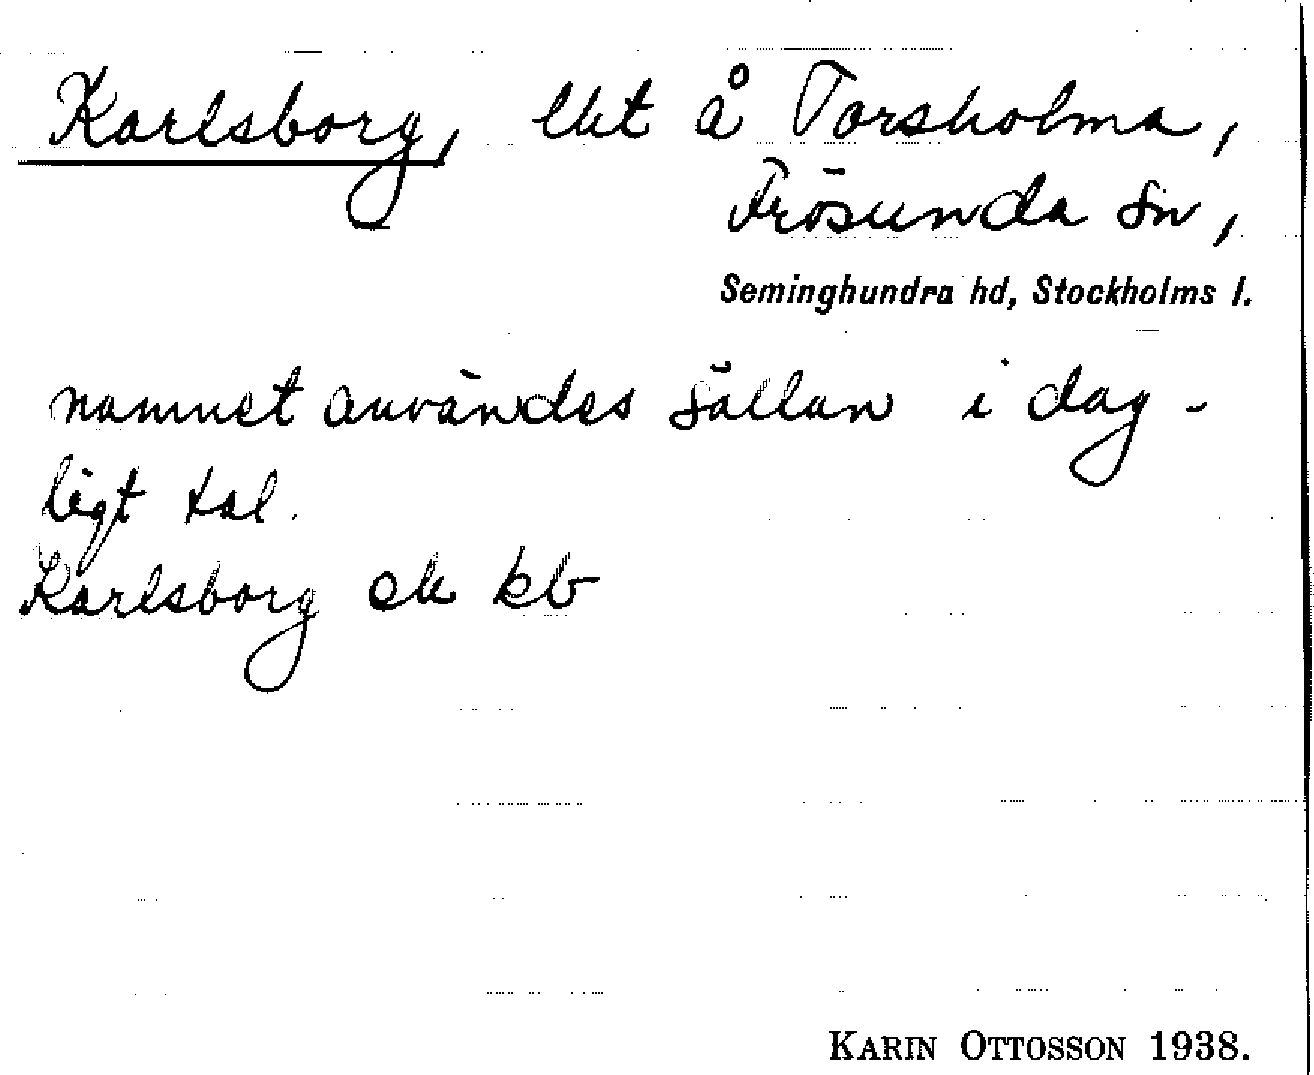 Karlsborg, lht å Torsholma,
Frösunda sn,
Seminghundra hd, Stockholms l.
namnet användes sällan i dag-
ligt tal.
Karlsborg ek kb
KARIN OTTOSSON 1938.